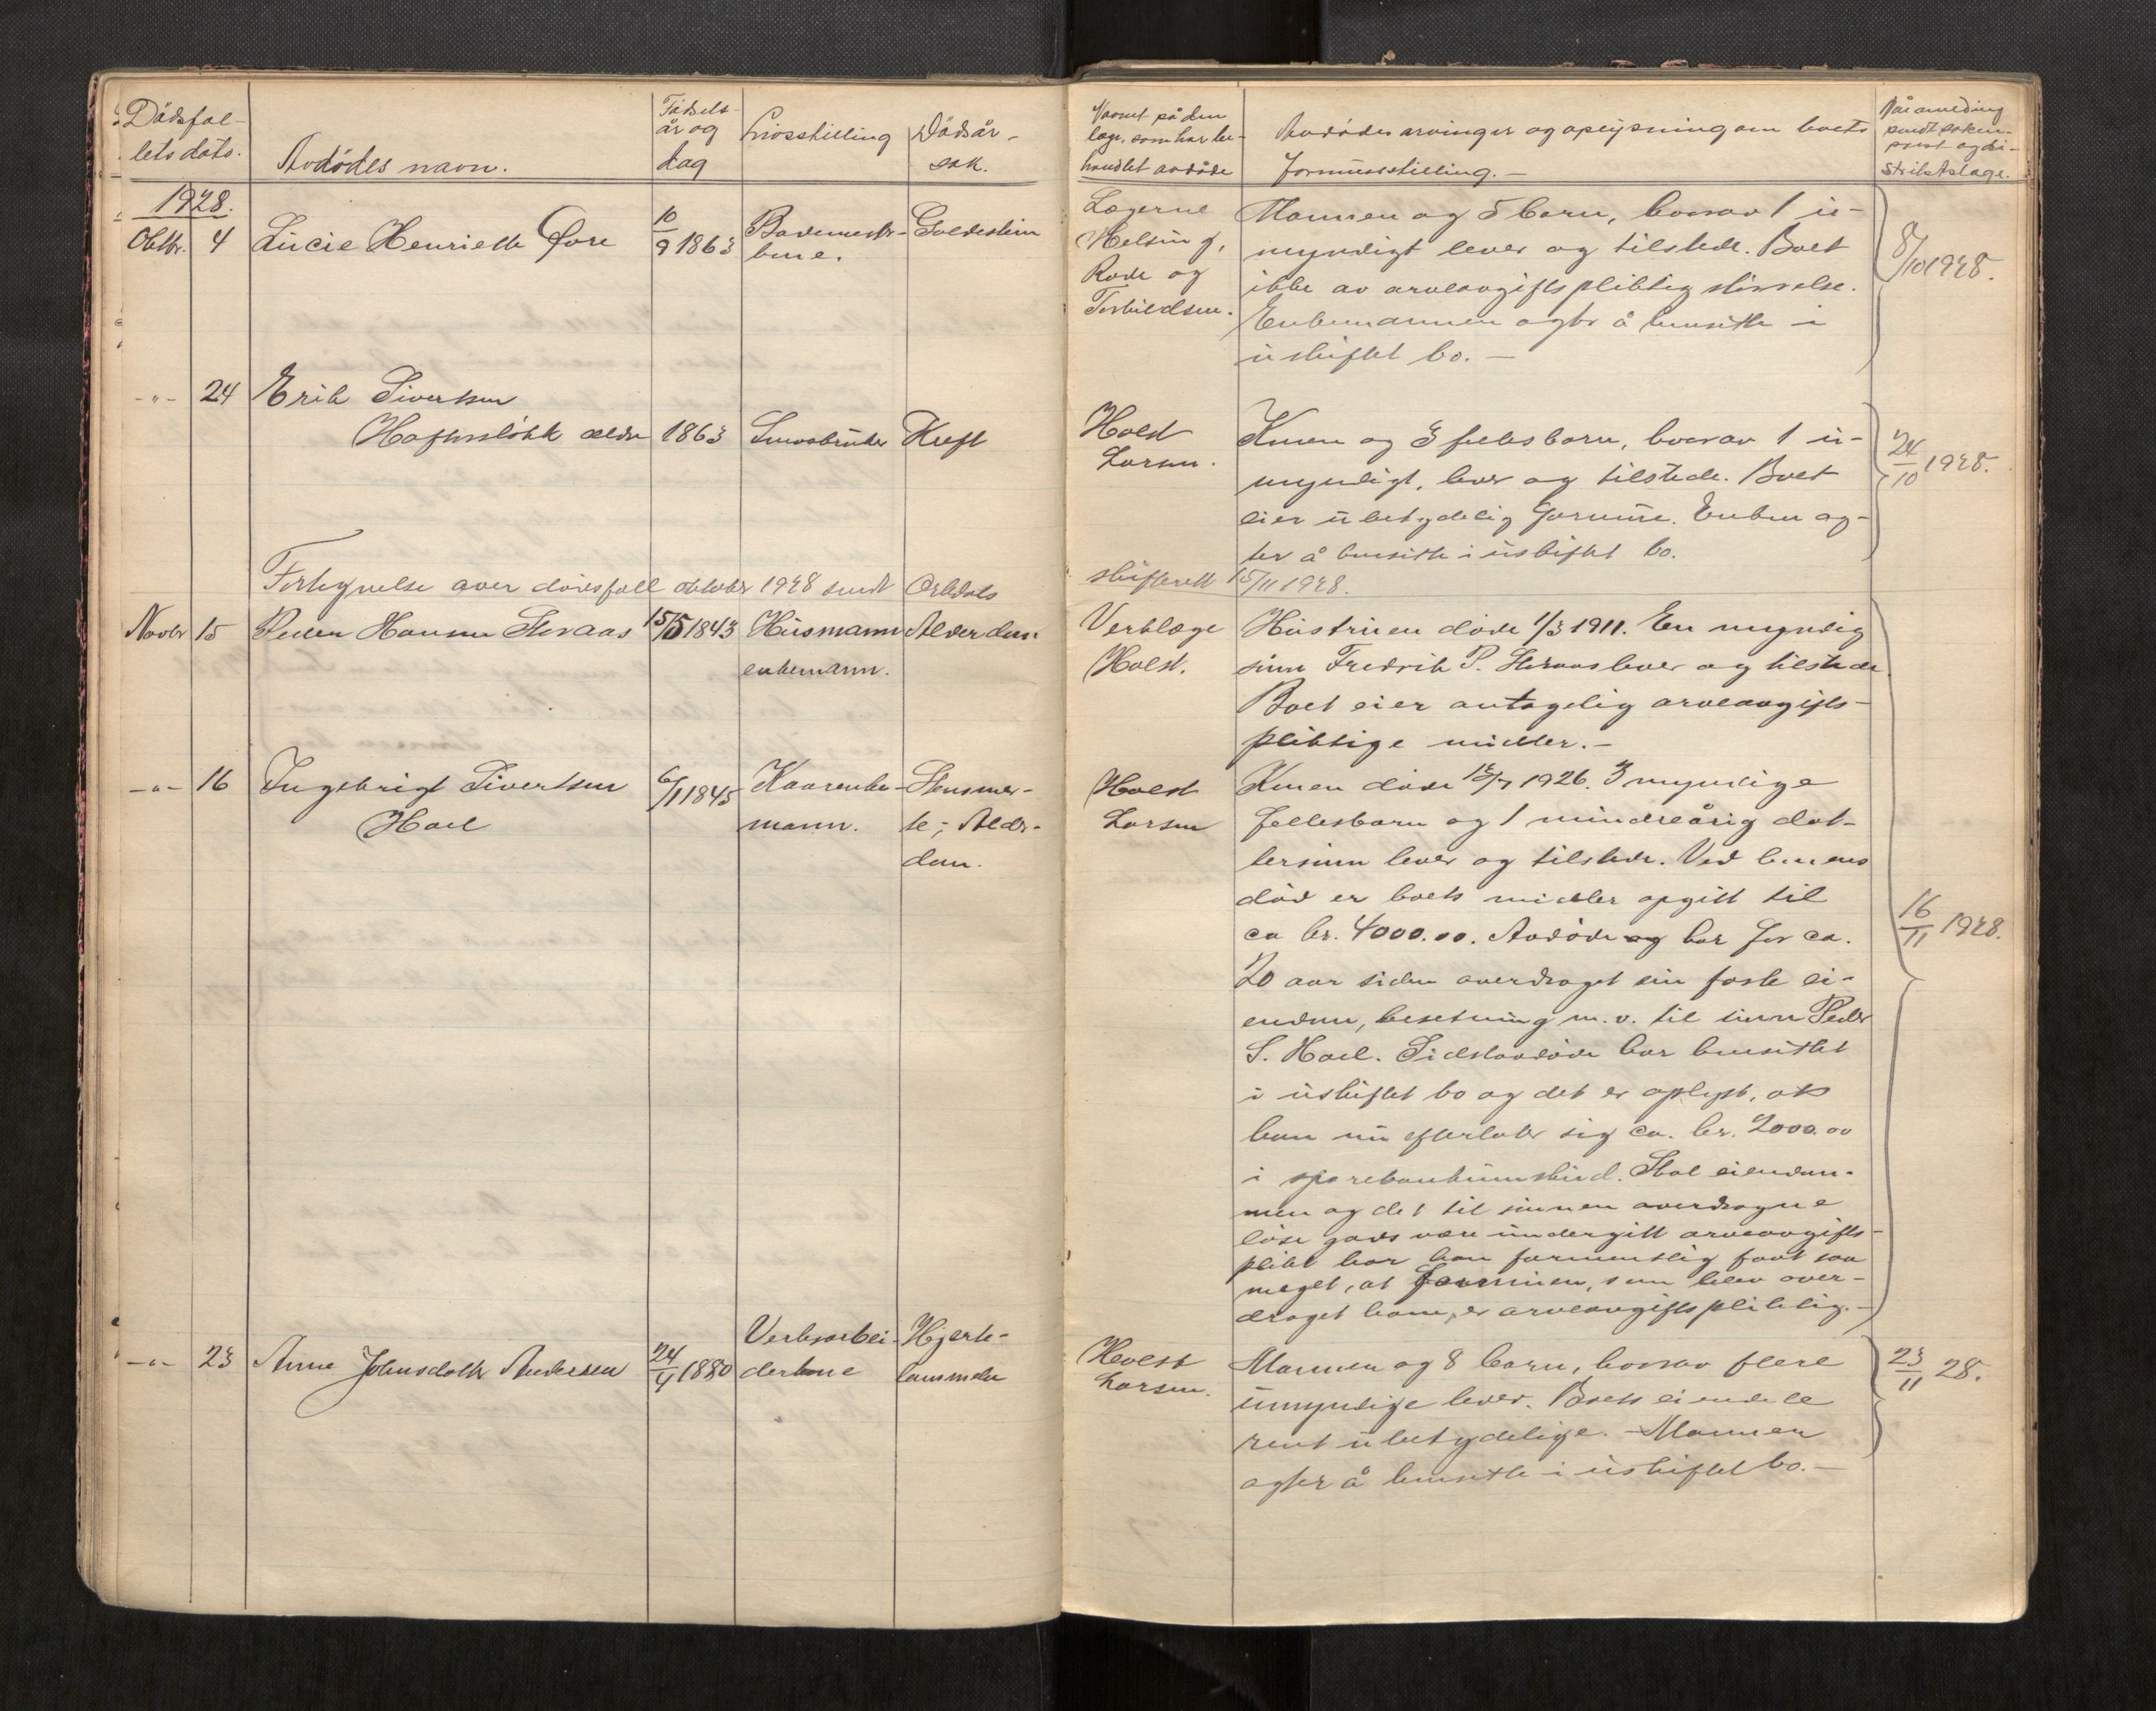 Dødsfal-
lets dato.
Avdødes navn.
Fødsels-
år og
dag
Livsstilling
Dødsår-
sak.
Navnet på den
læge, som har be-
handlet avdøde
Avdødes arvinger og oplysning om boets
formuesstilling. —
Når anmelding
sendt sokne-
prest og di-
striktslæge.
1928.
Oktbr. 4 Lucie Henriette Øore 10/9 1863 Bademester- Galdestein
kone.
Lægerne
Helsing,
Rode og
Torkildsen.
Mannen og 5 barn, hvorav 1 u-
myndigt lever og tilstede. Boet
ikke av arveavgiftspliktig størrelse.
Enkemannen agter å hensitte i
uskiftet bo. —
8/10 1928.
-"- 24 Erik Sivertsen
Haftensløkk ældre 1863 Småbruker Kreft
Holst
Larsen.
Konen og 3 fellesbarn, hvorav 1 u-
myndigt, lever og tilstede. Boet
eier ubetydelig formue. Enken ag-
ter å hensitte i uskiftet bo.
24/10 1928.
Fortegnelse over dødsfall oktober 1928 sendt Orkdals
skifterett 15/11 1928.
Novbr 15 Peder Hansen Steraas 15/5 1843 Husmann Alderdom
enkemann.
Verklæge
Holst.
Hustruen døde 1/3 1911. En myndig
sønn Fredrik P. Steraas lever og tilstede
Boet eier antagelig arveavgifts-
pliktige midler. —
-"- 16 Ingebrigt Sivertsen 6/1 1845 Kaarenke- Stensmer-
Hoel mann. te; Alder-
dom.
Holst
Larsen
Konen døde 1926. 3 myndige
fellesbarn og 1 mindreårig dat-
tersønn lever og tilstede. Ved konens
død er boets midler opgitt til
ca kr. 4000.00. Avdøde og har for ca.
20 aar siden overdraget sin faste ei-
endom, besetning m.v. til sønn Peder
S. Hoel. Sidstavdøde har hensittet
i uskiftet bo og det er oplyst, at
han nu efterlater sig ca. kr. 2000.00
i sparebankinnskud. Skal eiendom-
men og det til sønnen overdragne
løse gods være undergitt arveavgifts-
plikt har han formentlig faat saa
meget, at formuen, som blev over-
draget ham, er arveavgiftspliktig. —
16/11 1928.
-"- 23 Anne Johnsdatter Andersen 24/4 1880 Verksarbei- Hjerte-
derkone lammelse
Holst
Larsen.
Mannen og 8 barn, hvorav flere
umyndige lever. Boets eiendele
rent ubetydelige. — Mannen
agter å hensitte i uskiftet bo. —
23/11 28.